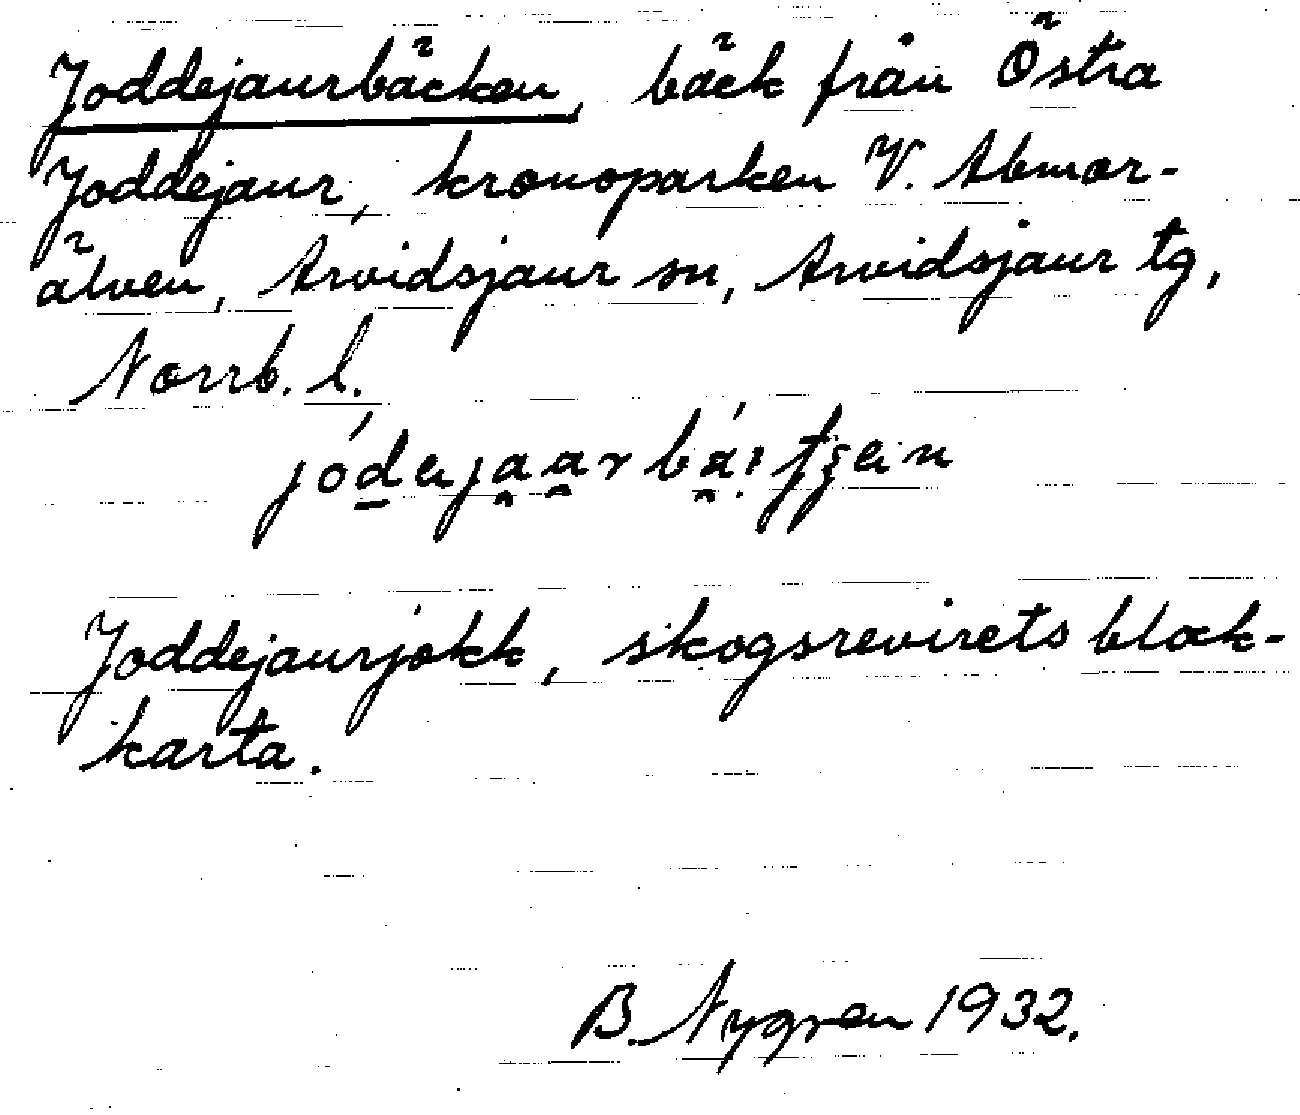 Joddejaurbäcken, bäck från Östra
Joddejaur, kronoparken V. Abmor-
älven, Arvidsjaur sn, Arvidsjaur tg,
Norrb. l.
Joddejaurjokk, skogsrevirets block-
karta.
B. Nygren 1932.